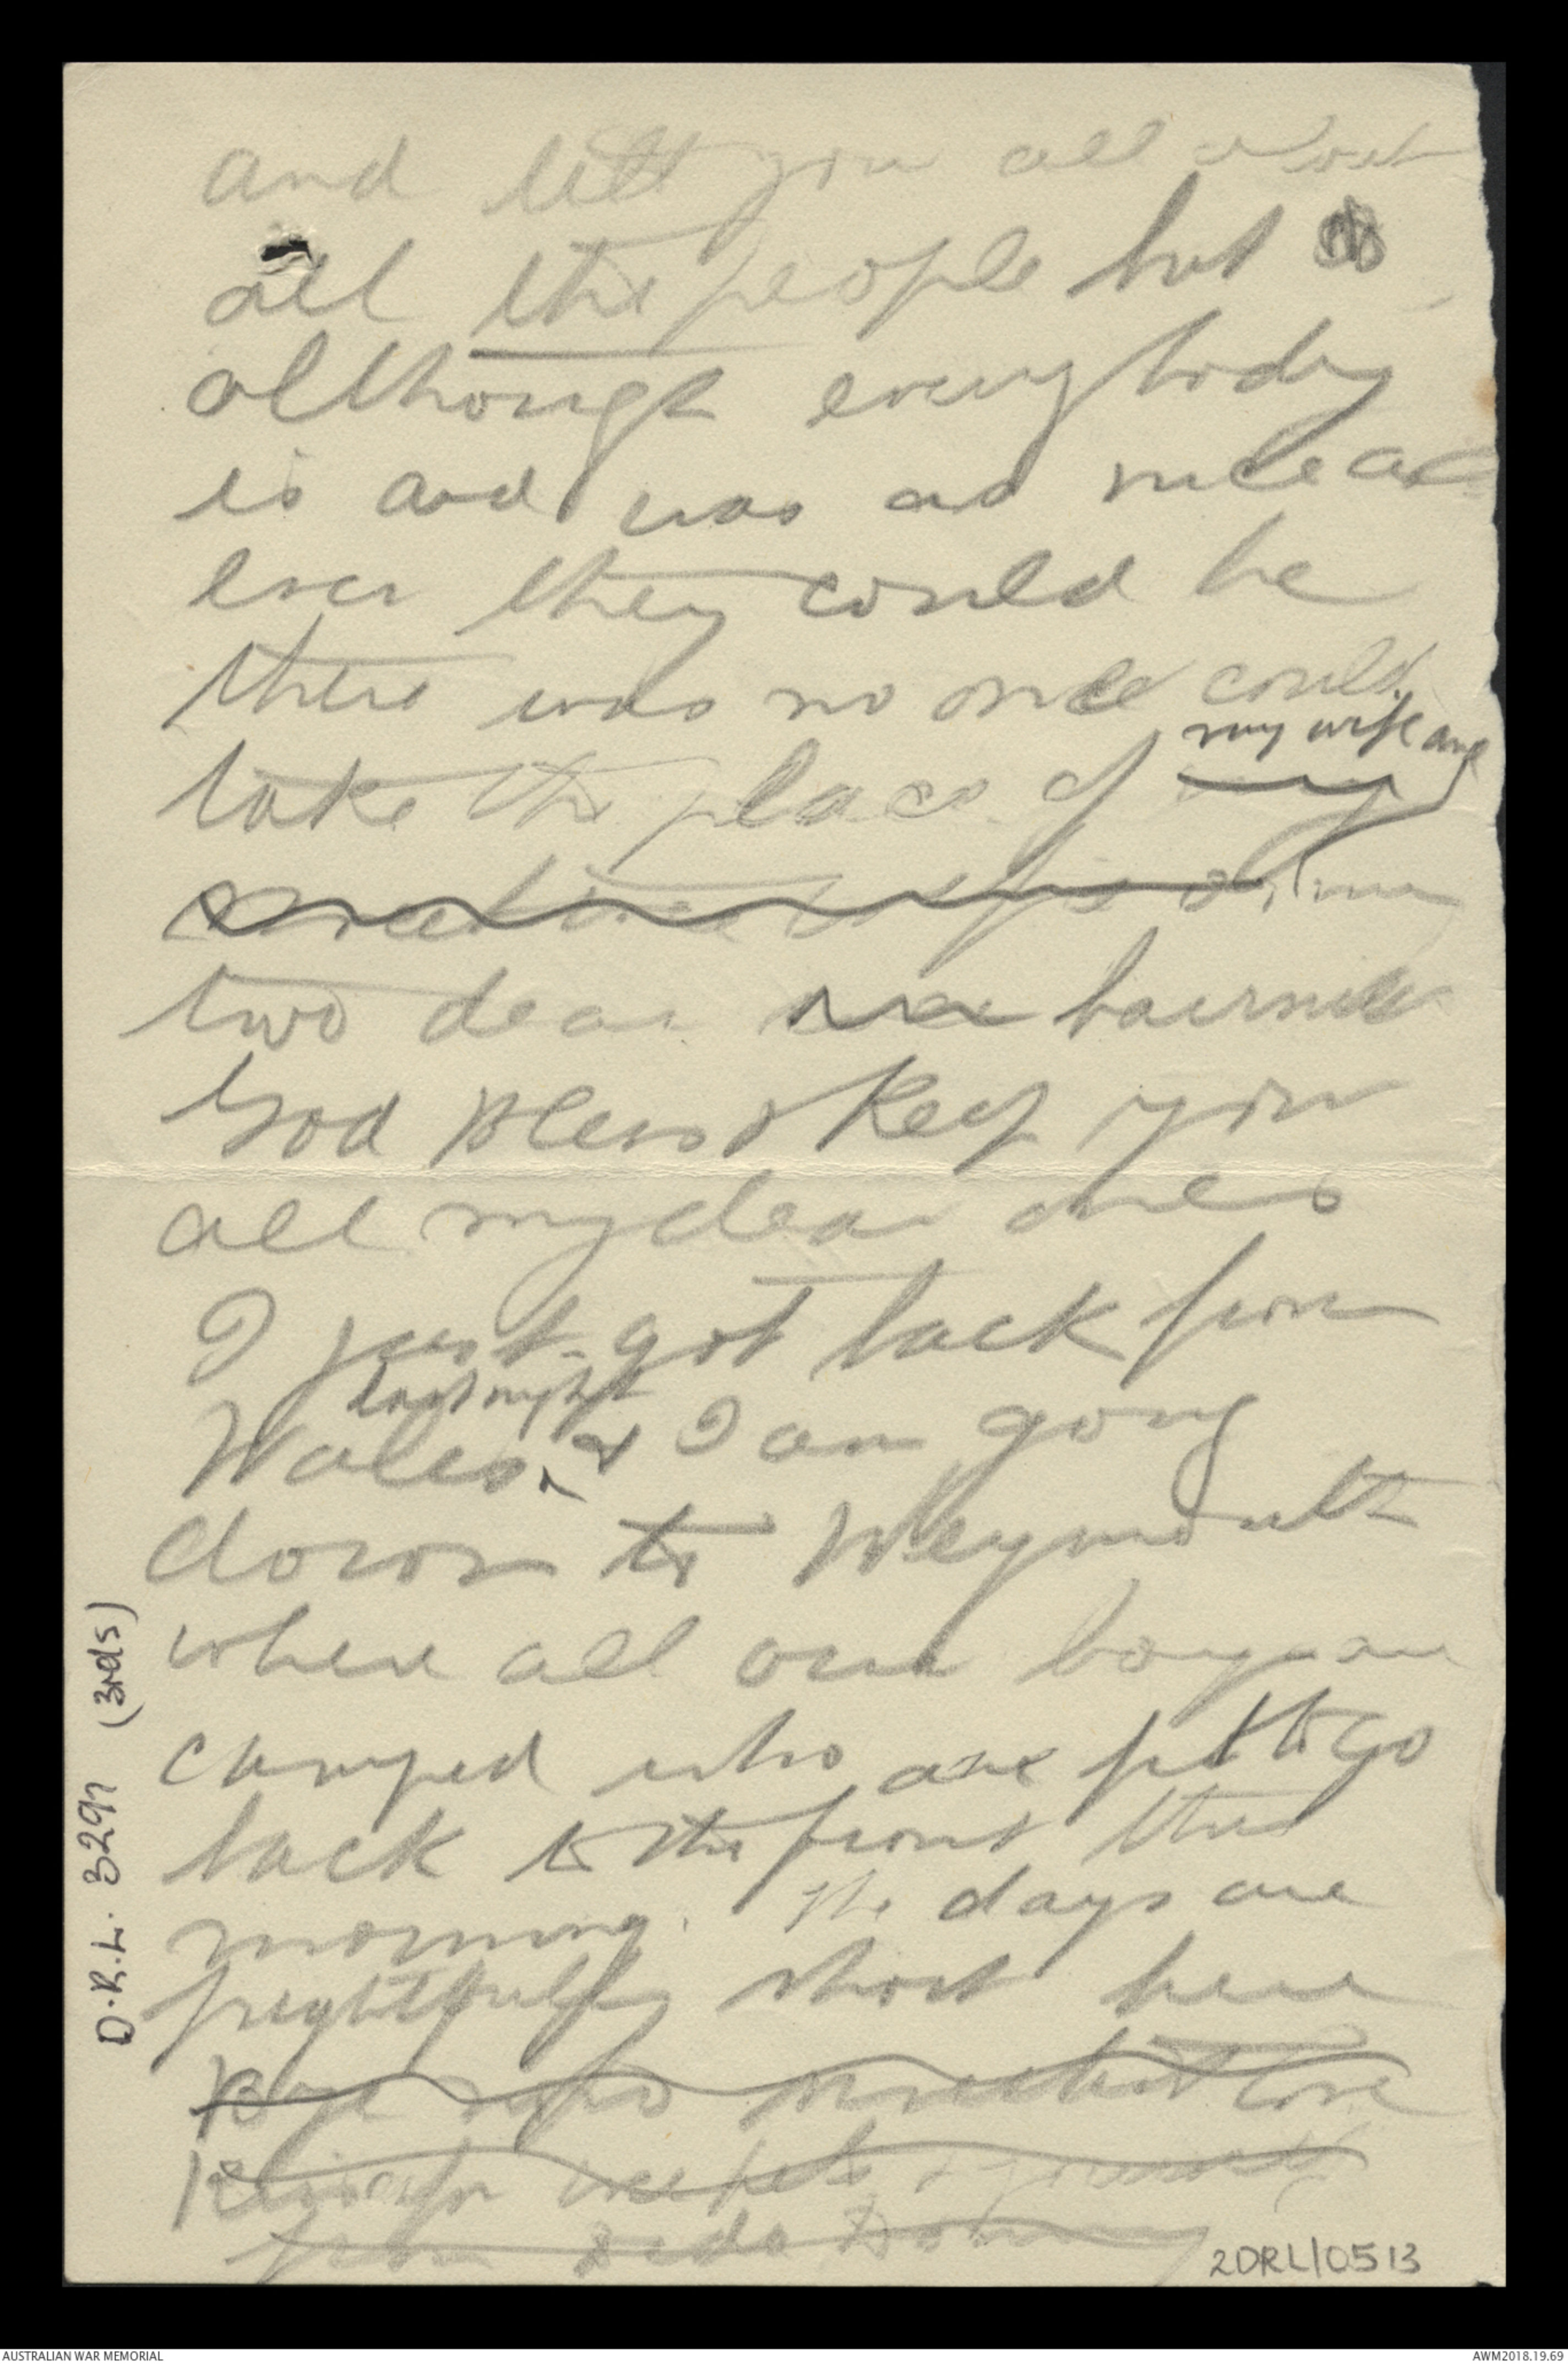 and tell you all about
all the people but
although everybody
is and was as nice as
ever they could be
there was no one could
take the place of my wife and
my
sweet wife or my
two dear wee bairnies
God Bless & Keep you
all my dear ones
I just got back from
Wales last night & I am going
down to Weymouth
where all our boys are
camped who are fit to go
back to the front this
morning. The days are
frightfully short here
Bye bye sweetest love
Kisses for wee pets & yourself
from Dido Tommy
D.R.L. 3297 (3rds)
2DRL/0513
AUSTRALIAN WAR MEMORIAL
AWM2018.19.69